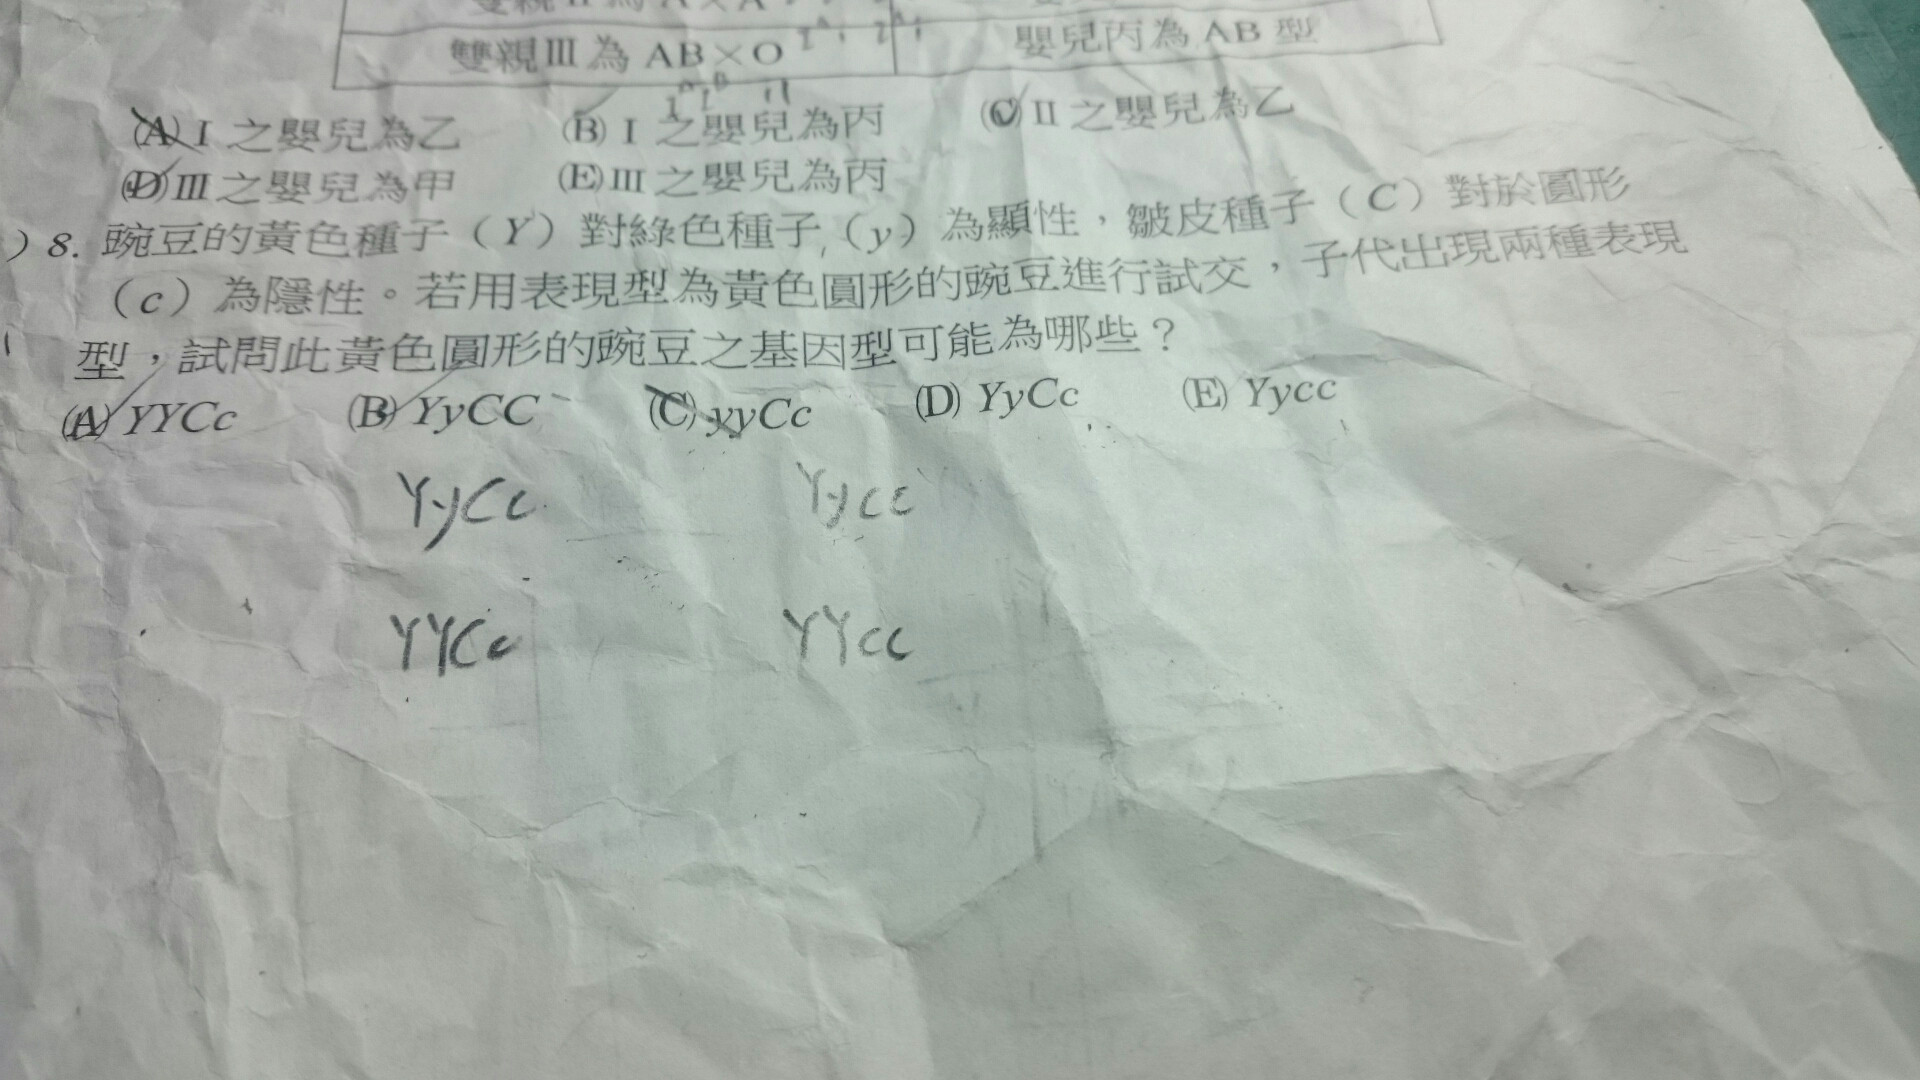 雙親II為A×A
雙親III為AB×O 嬰兒丙為AB型
(A) I之嬰兒為乙 (B) I之嬰兒為丙 (C) II之嬰兒為乙
(D) III之嬰兒為甲 (E) III之嬰兒為丙
) 8. 豌豆的黃色種子（Y）對綠色種子（y）為顯性，皺皮種子（C）對於圓形
（c）為隱性。若用表現型為黃色圓形的豌豆進行試交，子代出現兩種表現
型，試問此黃色圓形的豌豆之基因型可能為哪些？
(A) YYCc (B) YyCC (C) yyCc (D) YyCc (E) Yycc
YyCc Yycc
YYCc YYcc